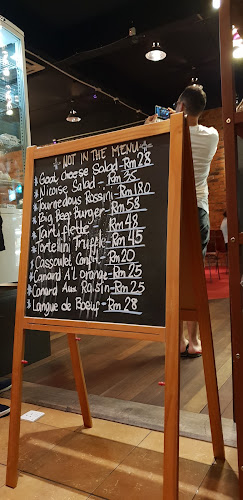 NOT IN THE MENU
Goat cheese Salad - Rm 28
Nicoise Salad - Rm 35
Tournedous Rossini - Rm 180
Big Beef Burger - Rm 58
Tartiflette - Rm 48
Tortellini Truffle - Rm 45
Cassoulet Confit - Rm 20
Canard A'L orange - Rm 25
Canard Aux Raisin - Rm 25
Langue de Boeuf - Rm 28